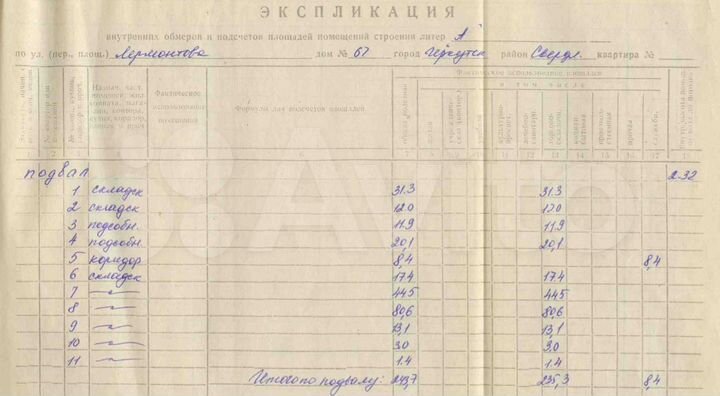 ЭКСПЛИКАЦИЯ
внутренних обмеров и подсчетов площадей помещений строения литер А
по ул. (пер., площ.) Лермонтова дом № 67 город Иркутск район Сверд. квартира №
Фактическое использование площади
в том числе
Фактическое использование помещения
Формула для подсчета площадей
2 6 7 8 9 10 11 12 13 14 15 16 17 18
подвал 2.32
1 складск 31.3 31.3
2 складск 12.0 12.0
3 подсобн. 11.9 11.9
4 подсобн. 20,1 20,1
5 коридор 8,4 8,4
6 складск 17.4 17.4
7 —〃— 44.5 44.5
8 —〃— 80,6 80,6
9 —〃— 13,1 13,1
10 —〃— 3.0 3.0
11 —〃— 1.4 1.4
Итого по подвалу: 243,7 235,3 8,4
AVITO